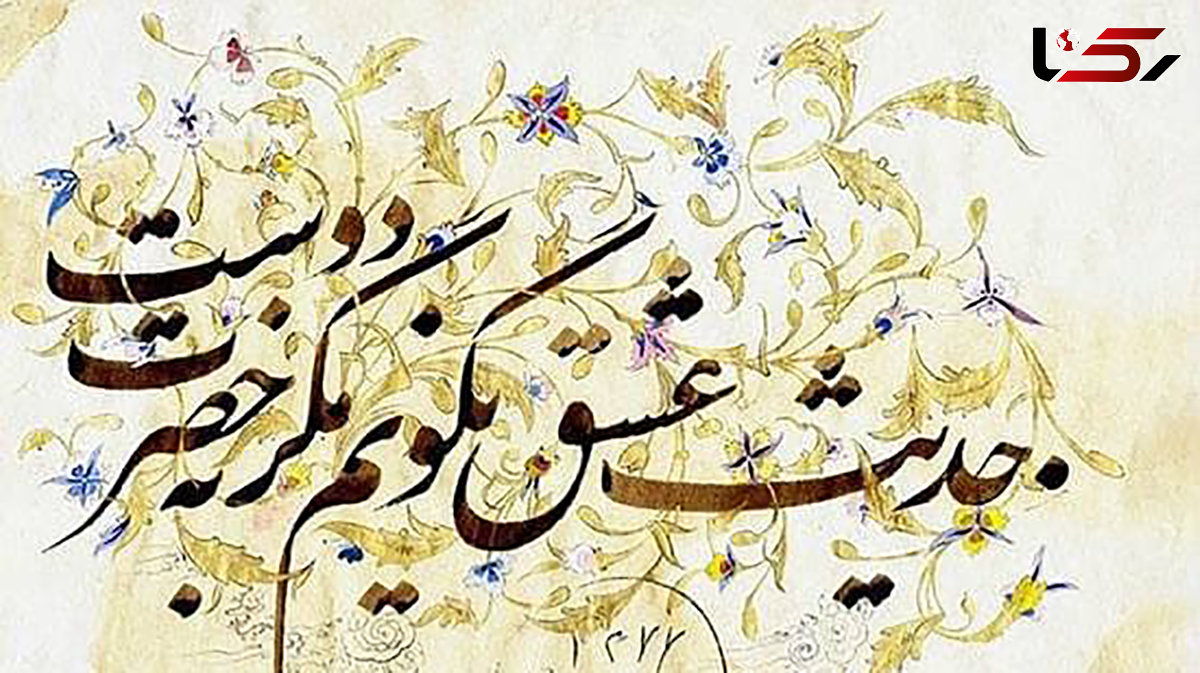 رکنا
حدیث عشق نگویم مگر به حضرت دوست